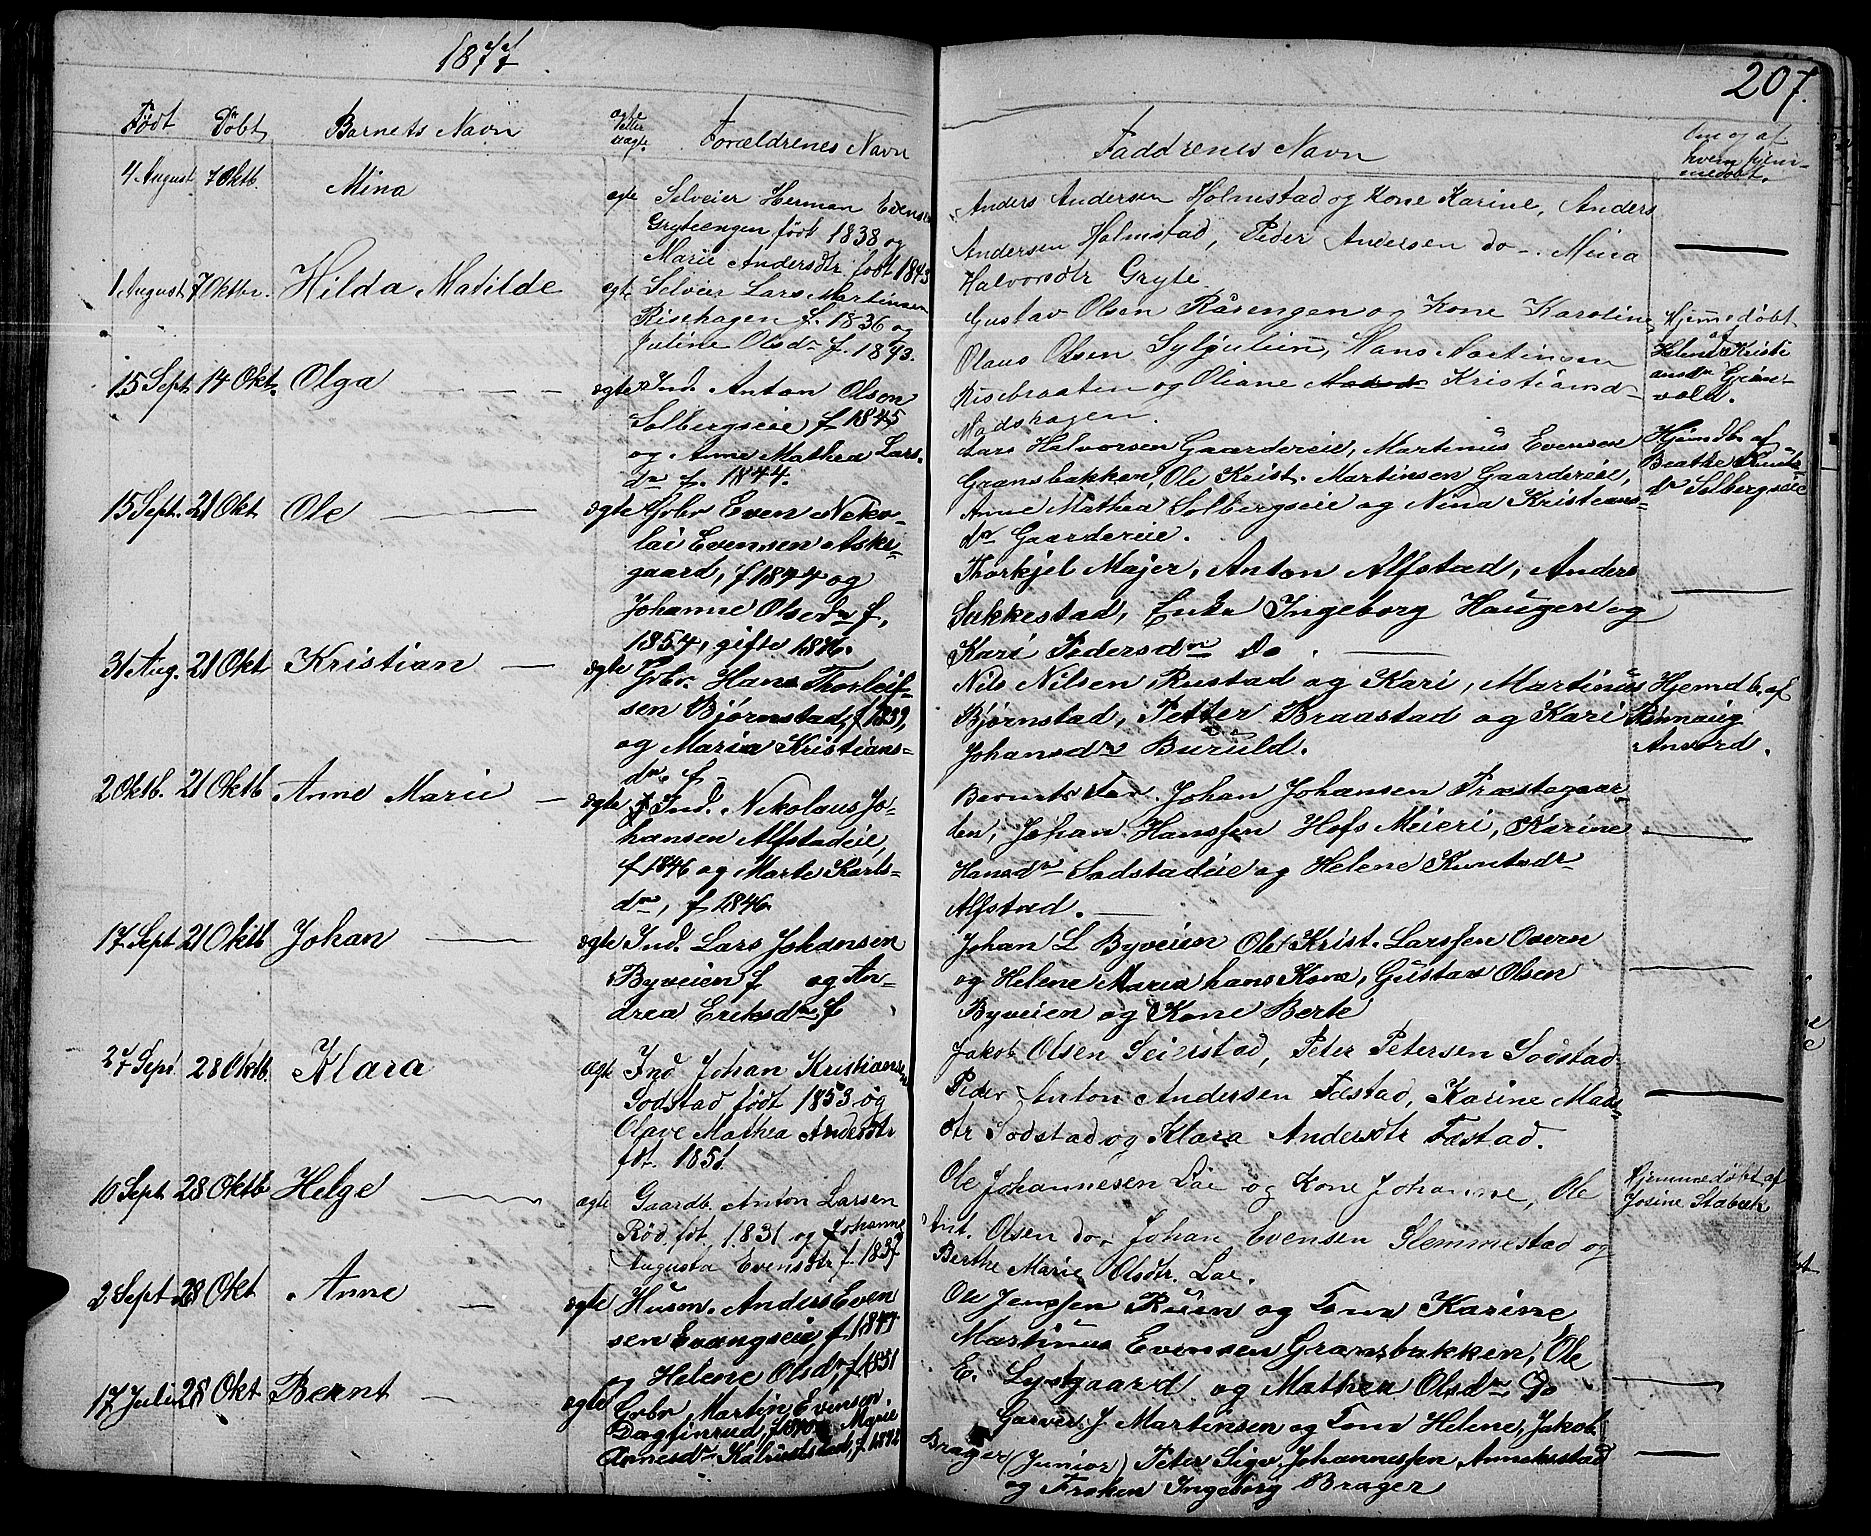 1877
207.
Født Døbt Barnets Navn ægte eller uægte Forældrenes Navn Faddrenes Navn Om og af hvem hjemmedøbt.
4 August 7 Oktb. Mina ægte Selveier Herman Evensen
Gryteengen født 1838 og
Marie Andersdtr født 1843
Anders Andersen Holmstad og Kone Karine, Anders
Andersen Holmstad, Peder Andersen do -. Mina
Halvorsdtr Gryte.
1 August 7 Oktbr. Hilda Matilde ægte Selveier Lars Martinsen
Risehagen f. 1836 og
Juline Olsdr f. 1843.
Gustav Olsen Råsengen og Kone Karoline
Olaus Olsen Syljulien, Hans Martinsen
Risebraaten og Oliane Kristiansd-
Madshagen.
Hjemmedøbt
af
Helene Kristi
ansdr Grøn-
vold.
15 Sept. 14 Okt. Olga ægte Ind. Anton Olsen
Solbergseie f 1845
og Anne Mathea Lars-
dr f. 1844.
Lars Halvorsen Gaardereie, Martinus Evensen
Gaansbakken, Ole Krist. Martinsen Gaardereie,
Anne Mathea Solbergseie og Nina Kristians-
dr Gaardereie.
Hjemdb. af
Beathe Knuts-
dr Solbergseie
15 Sept. 21 Okt Ole ægte Gbr Even Niko-
lai Evensen Aske-
gaard, f 1844 og
Johanne Olsdr f.
1854, gifte 1876.
Thorkjel Majer, Anton Alfstad, Anders
Sukkestad, Enke Ingeborg Haugen og
Kari Pedersdr Do.
31 Aug. 21 Okt Kristian ægte Gbr. Hans Thorleif-
sen Bjørnstad, f 1839,
og Maria Kristians-
dr. f -
Nils Nilsen Rustad og Kari, Martinus
Bjørnstad, Petter Braastad og Kari
Johansdr Buruld.
Hjemdb. af
Rønnaug
Anvord.
2 Oktb. 21 Oktb Anne Marie ægte Ind. Nikolaus Jo-
hansen Alfstadeie,
f 1846 og Marte Karls-
dr, f 1846.
Barnets Far. Johan Johansen Præstegaar-
den, Johan Hanssen Hofs Meieri, Karine
Hansdr Sodstadeie og Helene Kuntsdr
Alfstad.
17 Sept 21 Oktb Johan ægte Ind. Lars Johansen
Byveien f og An-
drea Eriksdr f
Johan L Byveien Ole Krist. Larssen Overn
og Helene Maria hans Kone, Gustav Olsen
Byveien og Kone Berte
27 Sept 28 Oktb. Klara ægte Ind Johan Kristiansen
Sodstad født 1853 og
Olave Mathea Andersdtr
fdt. 1851
Jakob Olsen Seierstad, Peter Petersen Sodstad
Peder Anton Andersen Fæstad, Karine Mads-
dtr Sodstad og Klara Andersdtr Fæstad.
10 Sept. 28 Oktb Helge ægte Gaardb. Anton Larsen
Rød fdt 1831 og Johanne
Augusta Evensdtr f 1837
Ole Johannesen Lae og Kone Johanne, Ole
Ant. Olsen do, Johan Evensen Slemmestad og
Berthe Marie Olsdtr. Lae.
Hjemmedøbt af
Josine Stabæk
2 Sept 28 Okt Anne ægte Husm. Anders Even
sen Evangseie, f 1844
og Helene Olsdr, f 1851
Ole Jenssen Ruen og Kone Karine
Martinus Evensen Gransbakken, Ole
E. Lystgaard og Mathea Olsdr Do
17 Juli 28 Okt Bernt ægte Gbr. Martin Evensen
Dagfinrud, f 1840 Marie
Arnesdr Kolsrudstad, f. 1842
Garver J. Martinsen og Kone Helene, Jakob
Brager (Junior) Peter Sigv. Johannessen Annexstad
og Frøken Ingeborg Brager